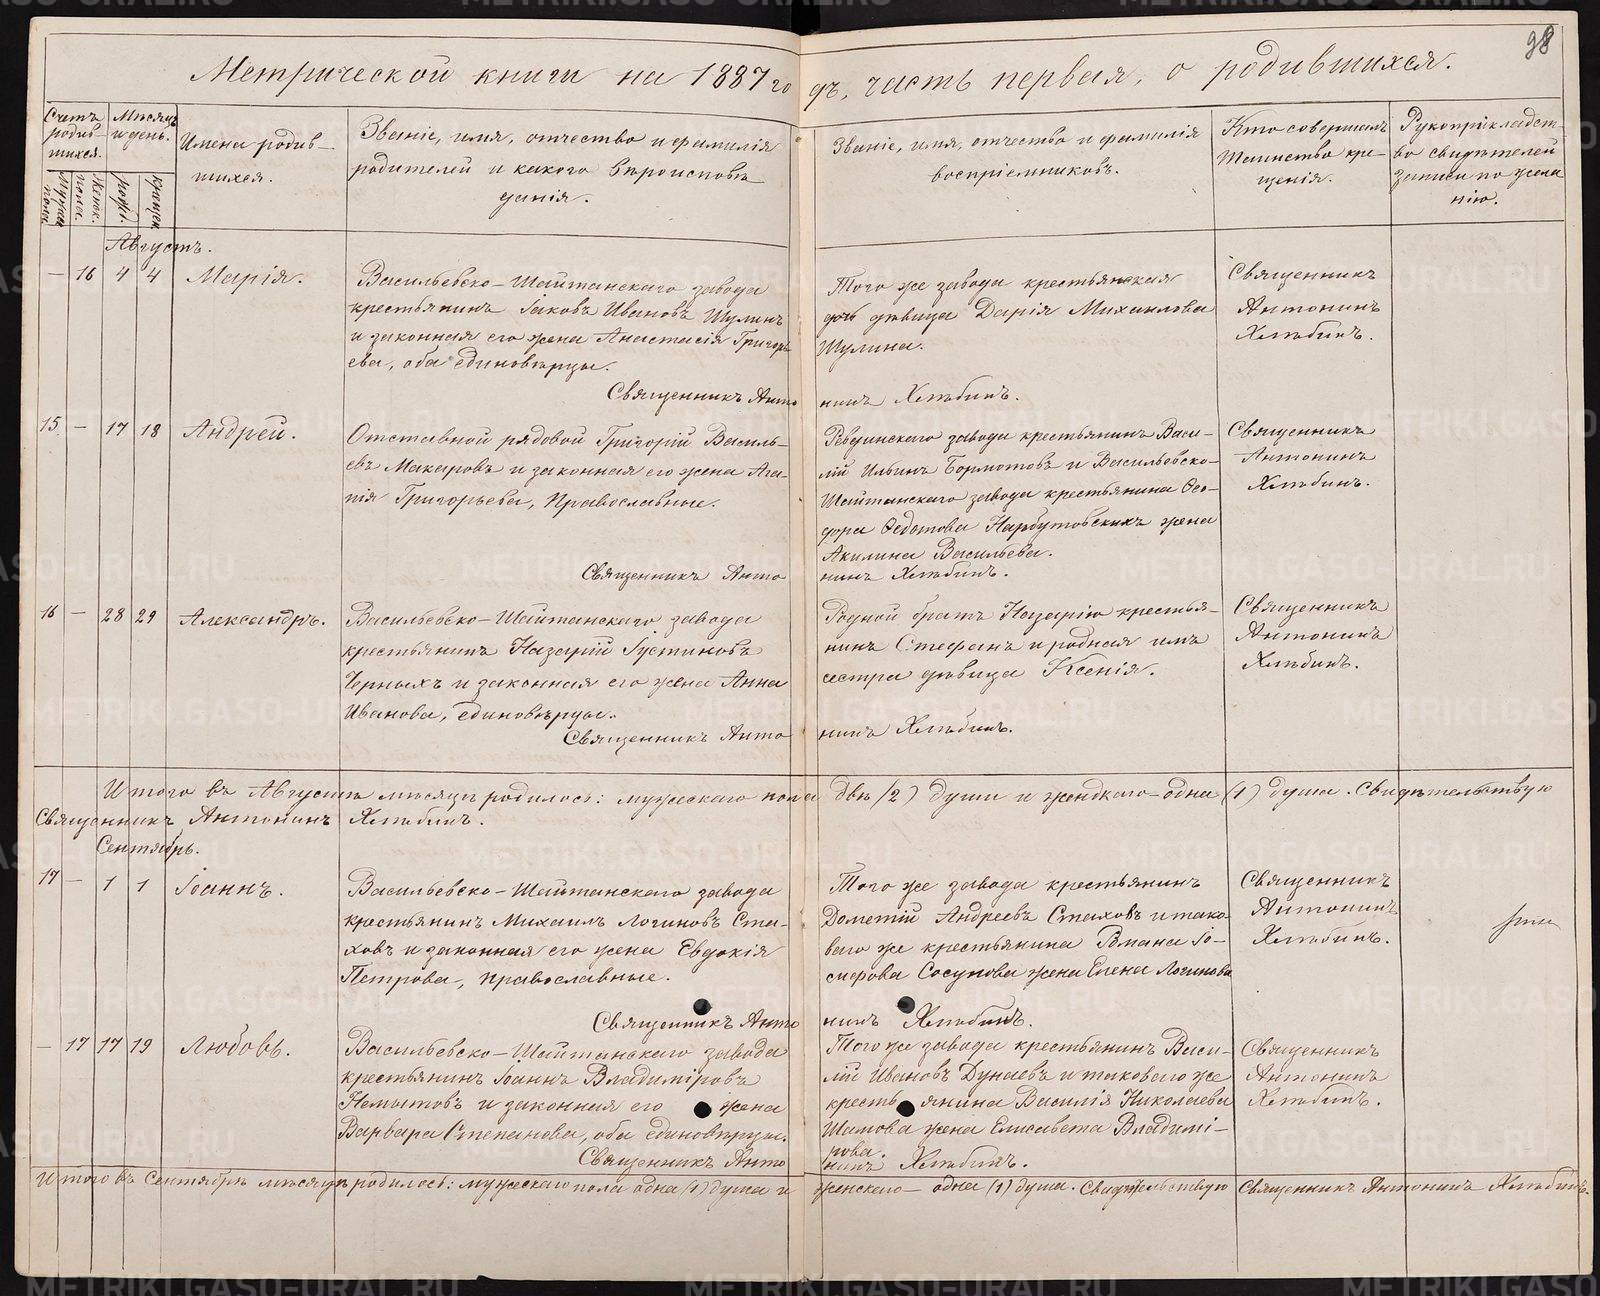 98
Метрической книги на 1887 годъ, часть первая, о родившихся.
Счетъ родившихся.
Мужеска пола.
Женск. пола.
Мѣсяцъ и день.
рожд.
крещен.
Имена родив-
шихся.
Званіе, имя, отчество и фамилія
родителей и какого вѣроисповѣ
данія.
Званіе, имя, отчество и фамилія
воспріемниковъ.
Кто совершалъ
таинство кре-
щенія.
Рукоприкладст-
во свидѣтелей
записи по жела
нію.
Августъ.
— 16 4 4 Марія.
Васильевско-Шайтанскаго завода
крестьянинъ Іаковъ Ивановъ Шулинъ
и законная его жена Анастасія Григорь
ева, оба единовѣрцы.
Того же завода крестьянская
дочь дѣвица Дарія Михаилова
Шулина.
Священникъ
Антонинъ
Хлѣбинъ.
Священникъ Антонинъ Хлѣбинъ.
15. — 17 18 Андрей.
Отставной рядовой Григорій Василь-
евъ Макаровъ и законная его жена Ага-
пія Григорьева, Православные.
Ревдинскаго завода крестьянинъ Васи-
лій Ильинъ Бормотовъ и Васильевско-
Шайтанскаго завода крестьянина Ѳео-
дора Ѳедотова Нарбутовскихъ жена
Акилина Васильева.
Священникъ
Антонинъ
Хлѣбинъ.
Священникъ Антонинъ Хлѣбинъ.
16 — 28 29 Александръ.
Васильевско-Шайтанскаго завода
крестьянинъ Назарій Іустиновъ
Черныхъ и законная его жена Анна
Иванова, единовѣрцы.
Родной братъ Назарію крестья-
нинъ Стефанъ и родная имъ
сестра дѣвица Ксенія.
Священникъ
Антонинъ
Хлѣбинъ.
Священникъ Антонинъ Хлѣбинъ.
Итого въ Августѣ мѣсяцѣ родилось: мужескаго пола двѣ (2) души и женскаго—одна (1) душа. Свидѣтельствую
Священникъ Антонинъ Хлѣбинъ.
Сентябрь.
17 — 1 1 Іоаннъ.
Васильевско-Шайтанскаго завода
крестьянинъ Михаилъ Логиновъ Ста-
ховъ и законная его жена Евдокія
Петрова, православные.
Того же завода крестьянинъ
Дометій Андреевъ Стаховъ и тако-
ваго же крестьянина Романа Іо-
сифова Сосунова жена Елена Логинова
Священникъ
Антонинъ
Хлѣбинъ.
Священникъ Антонинъ Хлѣбинъ.
— 17 17 19 Любовь.
Васильевско-Шайтанскаго завода
крестьянинъ Іоаннъ Владиміровъ
Немытовъ и законная его жена
Варвара Степанова, оба единовѣрцы.
Того же завода крестьянинъ Васи-
лій Ивановъ Дунаевъ и таковаго же
крестьянина Василія Николаева
Шамова жена Елисавета Владимі-
рова.
Священникъ
Антонинъ
Хлѣбинъ.
Священникъ Антонинъ Хлѣбинъ.
Итого въ Сентябрѣ мѣсяцѣ родилось: мужескаго пола одна (1) душа и женскаго—одна (1) душа. Свидѣтельствую Священникъ Антонинъ Хлѣбинъ.
METRIKI.GASO-URAL.RU